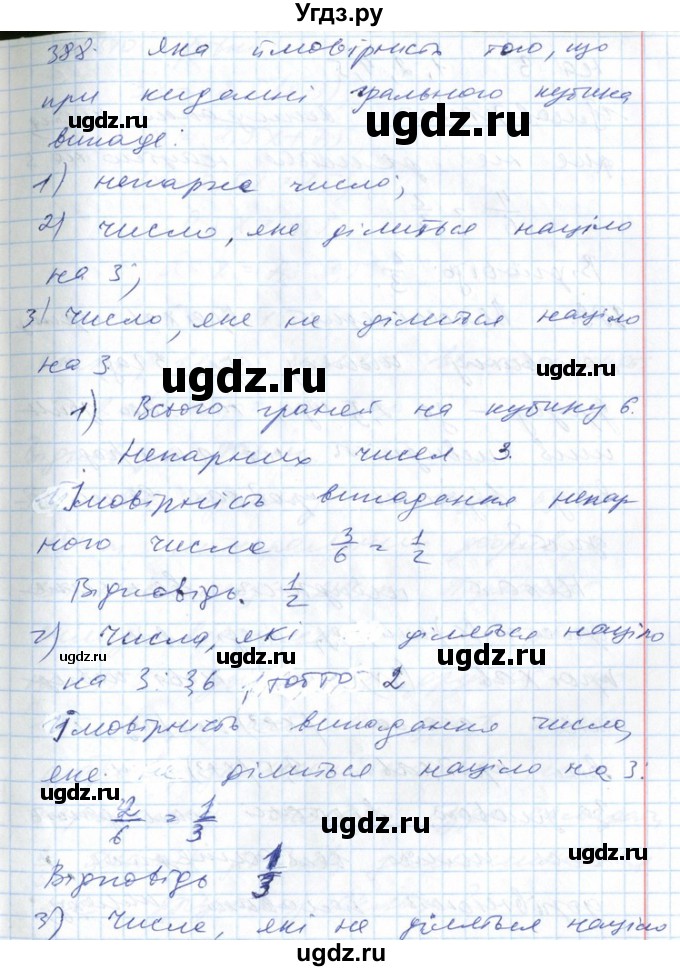 Угдз.ру
388. Яка ймовірність того, що
при киданні грального кубика
випаде:
ugdz.ru
ugdz.ru
1) непарне число;
2) число, яке ділиться націло
на 3;
ugdz.ru
ugdz.ru
3) число, яке не ділиться націло
на 3.
ugdz.ru
ugdz.ru
1) Всього граней на кубику 6.
Непарних чисел 3.
Імовірність випадання непар
ного числа 3/6 = 1/2
Відповідь. 1/2
ugdz.ru
2) Числа, які діляться націло
ugdz.ru
ugdz.ru
на 3: 3,6, тобто 2
Імовірність випадання числа,
яке ділиться націло на 3:
ugdz.ru
ugdz.ru
2/6 = 1/3
ugdz.ru
Відповідь 1/3
3) Числа, які не діляться націло
ugdz.ru